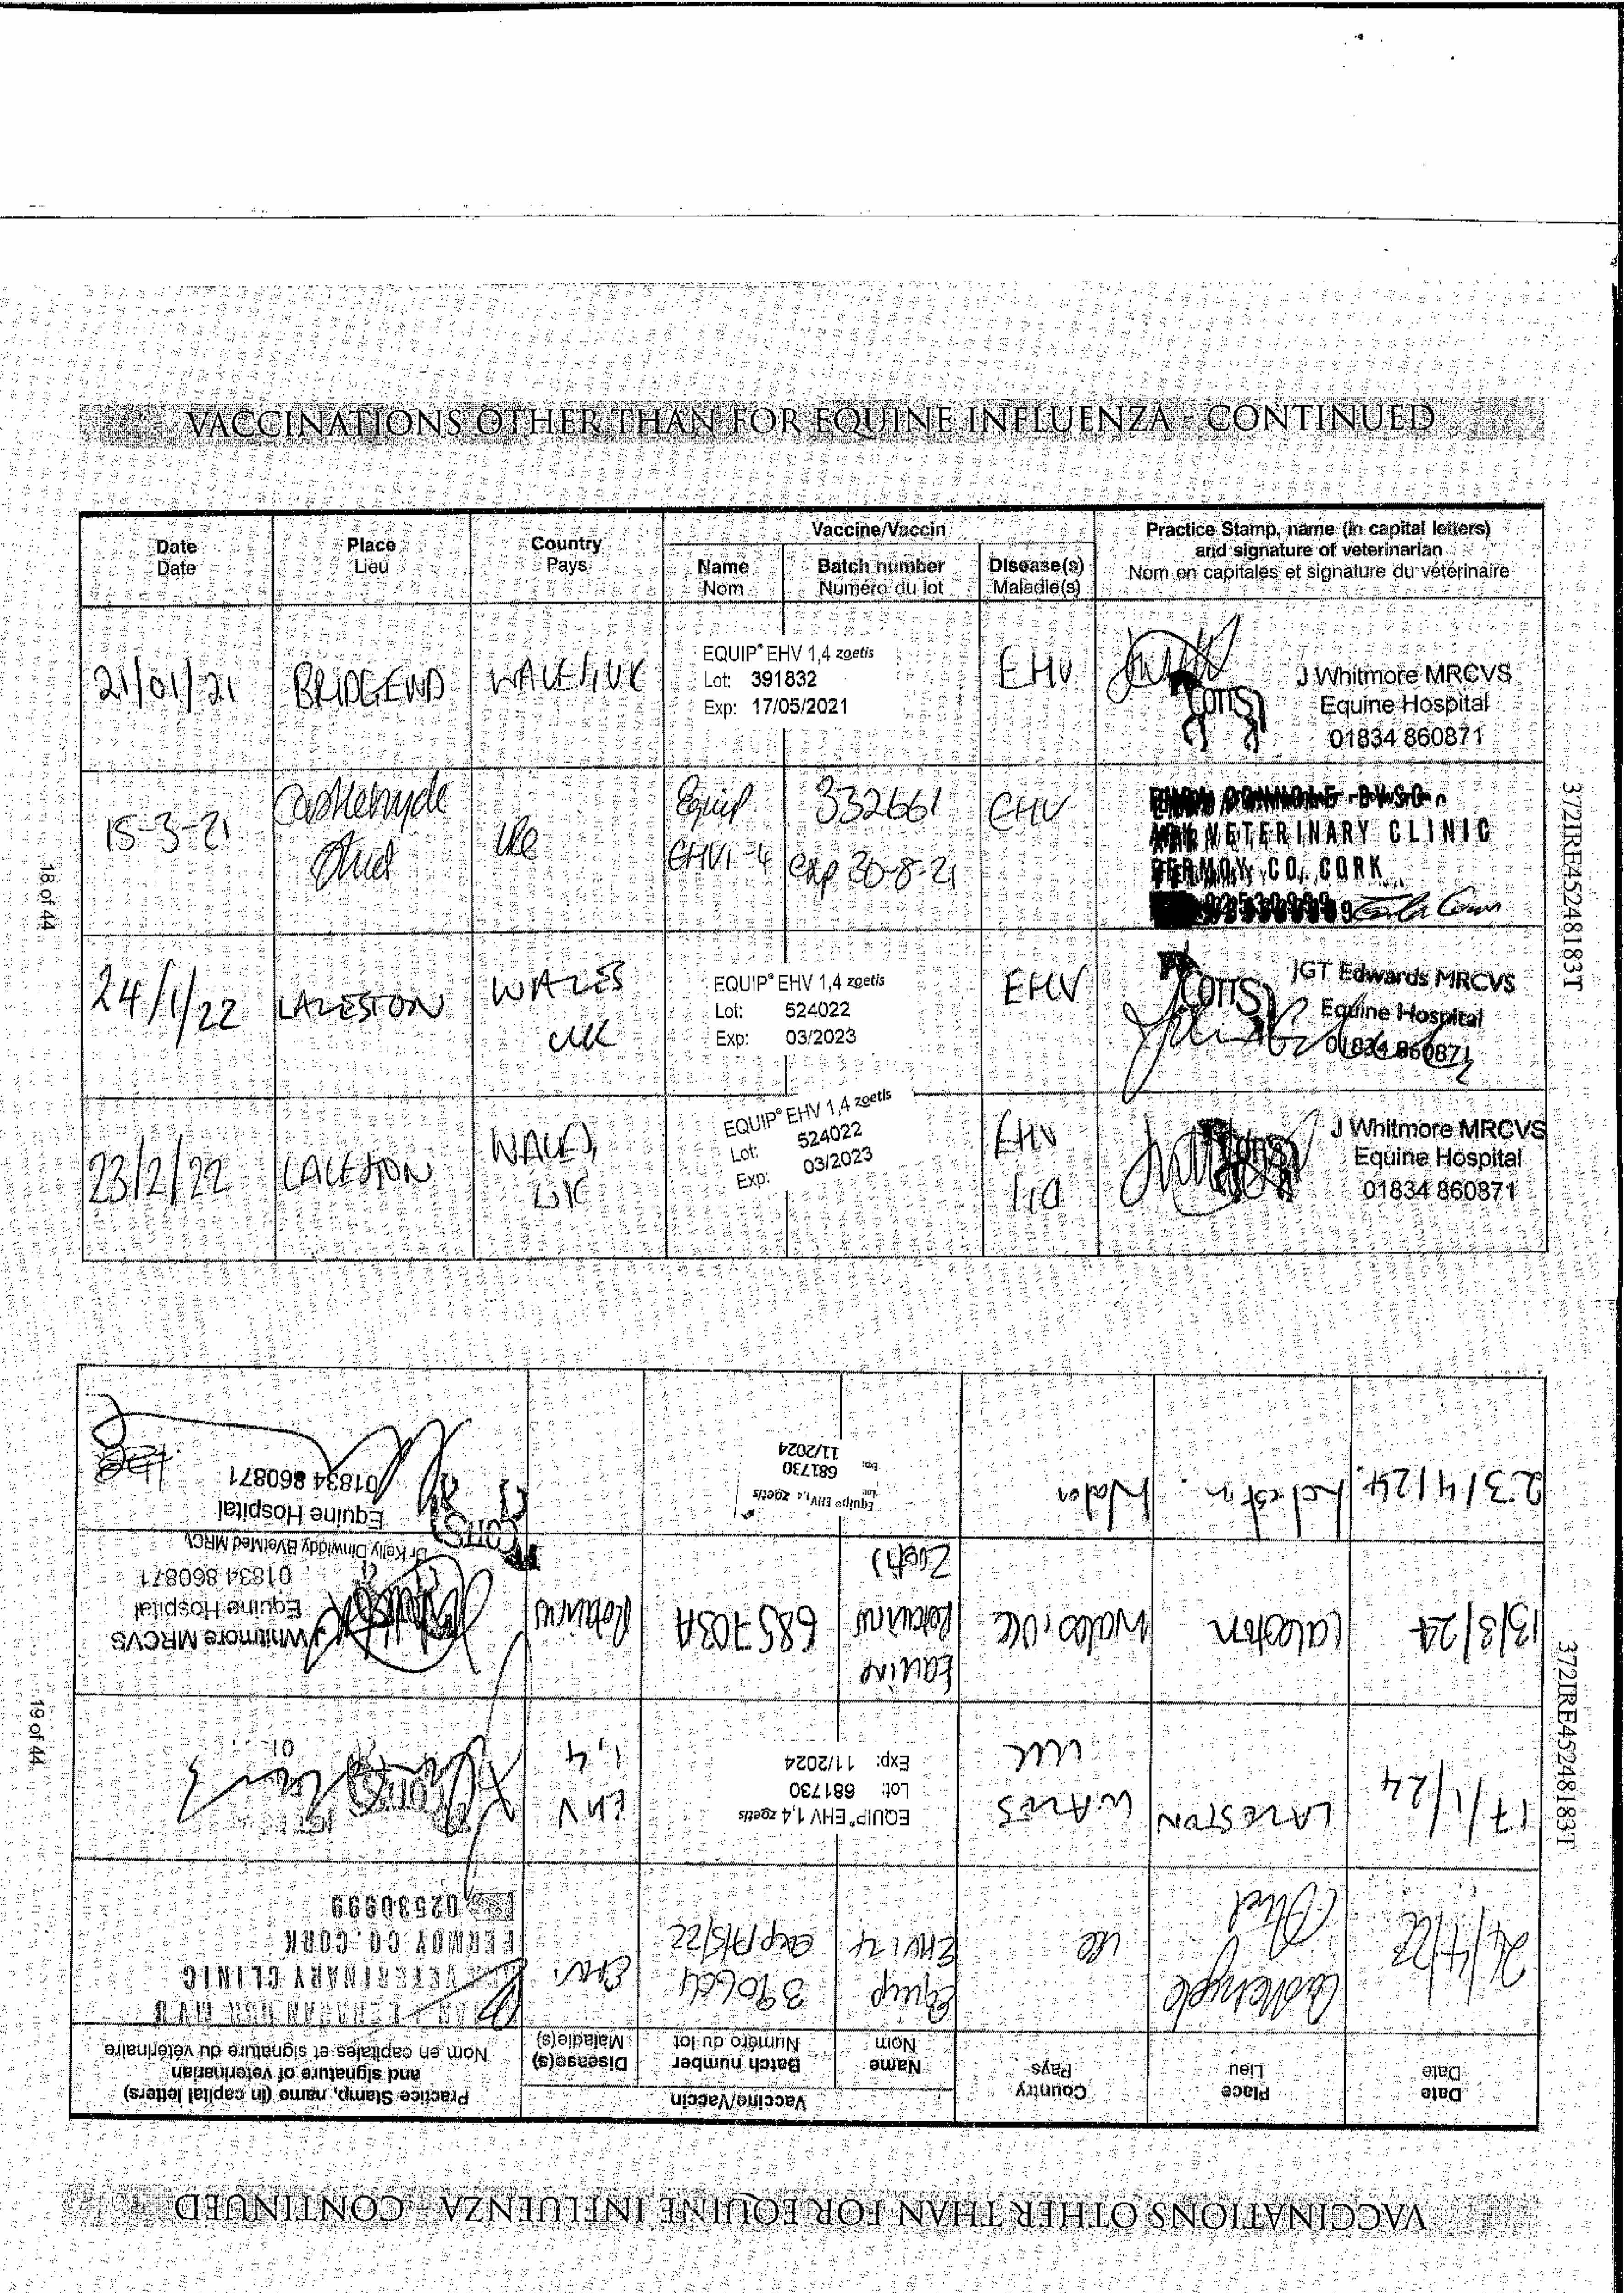 VACCINATIONS OTHER THAN FOR EQUINE INFLUENZA - CONTINUED
Date Place Country Vaccine/Vaccin Practice Stamp, name (in capital letters)
Date Lieu Pays Name Batch number Disease(s) and signature of veterinarian
Nom Numéro du lot Maladie(s) Nom en capitales et signature du vétérinaire
21/01/21 BRIDGEND WALES, UK EQUIP® EHV 1,4 zoetis EHV J Whitmore MRCVS
Lot: 391832 Equine Hospital
Exp: 17/05/2021 01834 860871
15-3-21 Castlehyde Stud Ire Equip 332661 EHV
EHV1-4 exp 30-8-21
VETERINARY CLINIC
FERMOY, CO. CORK
24/1/22 LALESTON WALES EQUIP® EHV 1,4 zoetis EHV JGT Edwards MRCVS
UK Lot: 524022 Equine Hospital
Exp: 03/2023 01834 860871
23/2/22 LALESTON WALES, EQUIP® EHV 1,4 zoetis EHV J Whitmore MRCVS
UK Lot: 524022 1,4 Equine Hospital
Exp: 03/2023 01834 860871
18 of 44
372IRE45248183T
VACCINATIONS OTHER THAN FOR EQUINE INFLUENZA - CONTINUED
Date Place Country Vaccine/Vaccin Practice Stamp, name (in capital letters)
Date Lieu Pays Name Batch number Disease(s) and signature of veterinarian
Nom Numéro du lot Maladie(s) Nom en capitales et signature du vétérinaire
Castlehyde Stud Ire Equip 390664 EHV
EHV1-4
VETERINARY CLINIC
FERMOY CO. CORK
02530999
17/1/24 LALESTON WALES EQUIP® EHV 1,4 zoetis EHV
UK Lot: 681730 1,4
Exp: 11/2024
13/3/24 Laleston Wales, UK Equine Rotavirus 685703A Rotavirus J Whitmore MRCVS
Equine Hospital
(Zoetis) 01834 860871
Dr Kelly Dinwiddy BVetMed MRCVS
23/4/24 Laleston Wales Equip® EHV 1,4 zoetis Equine Hospital
Lot: 681730 01834 860871
Exp: 11/2024
19 of 44
372IRE45248183T